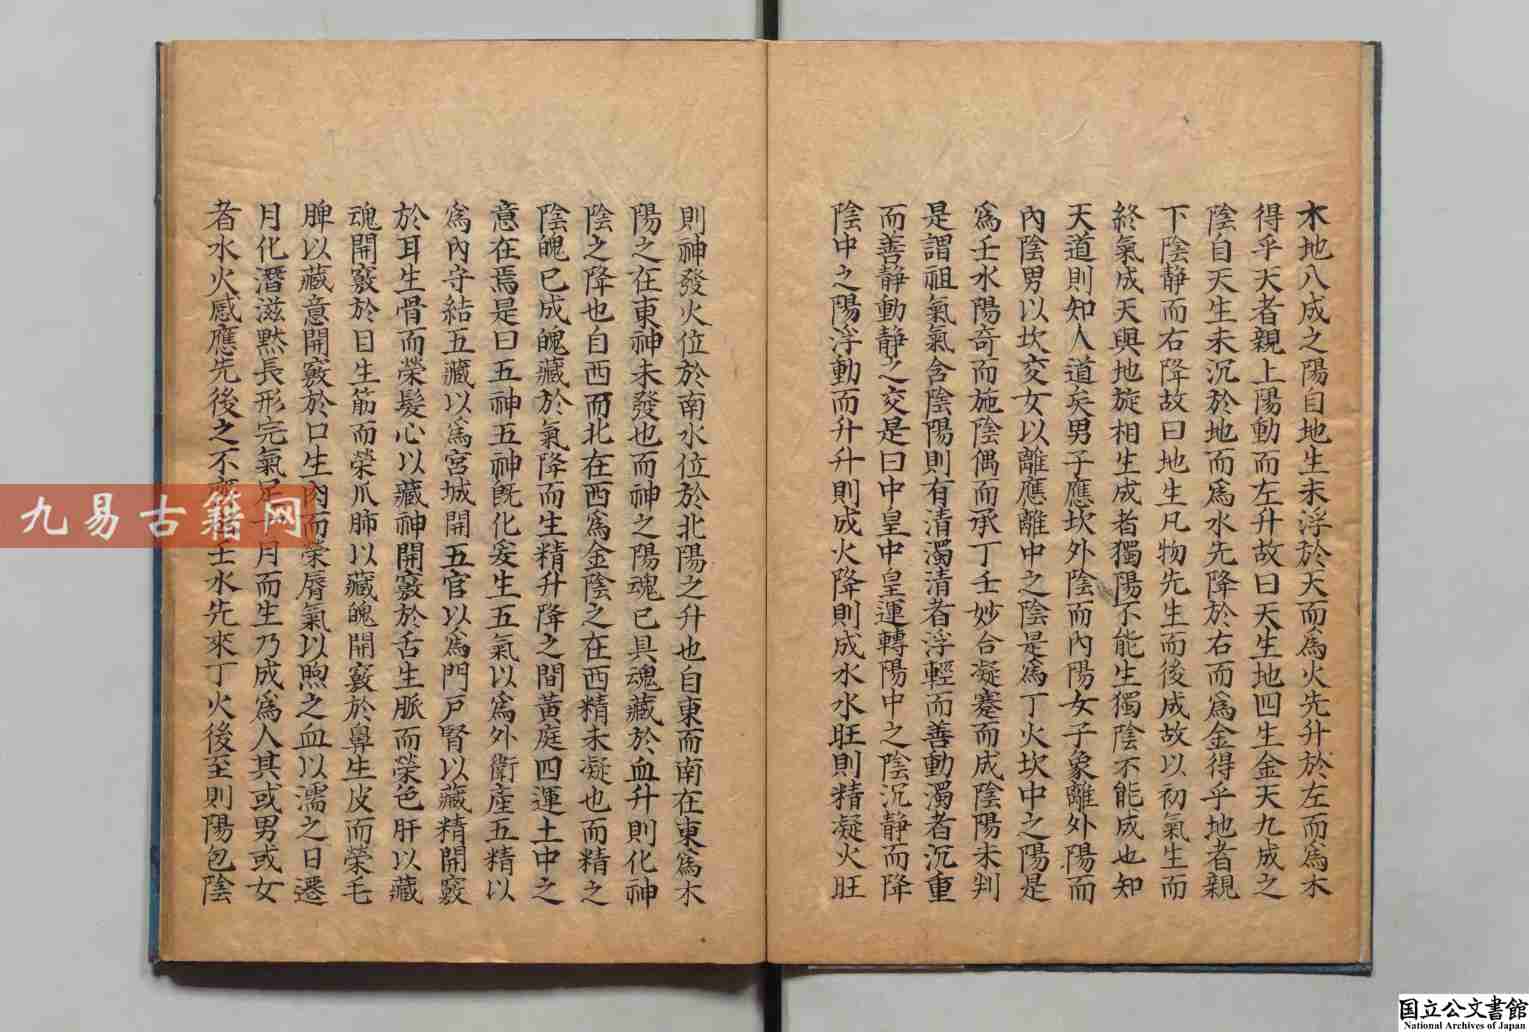 木地八成之陽自地生未浮於天而爲火先升於左而爲木
得乎天者親上陽動而左升故曰天生地四生金天九成之
陰自天生未沉於地而爲水先降於右而爲金得乎地者親
下陰静而右降故曰地生凡物先生而後成故以初氣生而
終氣成天與地旋相生成者獨陽不能生獨陰不能成也知
天道則知人道矣男子應坎外陰而內陽女子象離外陽而
內陰男以坎交女以離應離中之陰是爲丁火坎中之陽是
爲壬水陽奇而施陰偶而承丁壬妙合凝蹇而成陰陽未判
是謂祖氣氣含陰陽則有清濁清者浮輕而善動濁者沉重
而善静動静之交是曰中皇中皇運轉陽中之陰沉静而降
陰中之陽浮動而升升則成火降則成水水旺則精凝火旺
則神發火位於南水位於北陽之升也自東而南在東爲木
陽之在東神未發也而神之陽魂已具魂藏於血升則化神
陰之降也自西而北在西爲金陰之在西精未凝也而精之
陰魄已成魄藏於氣降而生精升降之間黃庭四運土中之
意在焉是曰五神五神旣化爰生五氣以爲外衛產五精以
爲內守結五藏以爲宮城開五官以爲門戶腎以藏精開竅
於耳生骨而榮髮心以藏神開竅於舌生脈而榮色肝以藏
魂開竅於目生筋而榮爪肺以藏魄開竅於鼻生皮而榮毛
脾以藏意開竅於口生肉而榮脣氣以煦之血以濡之日遷
月化潛滋黙長形完氣足十月而生乃成爲人其或男或女
者水火感應先後之不齊壬水先來丁火後至則陽包陰
九易古籍网
国立公文書館
National Archives of Japan